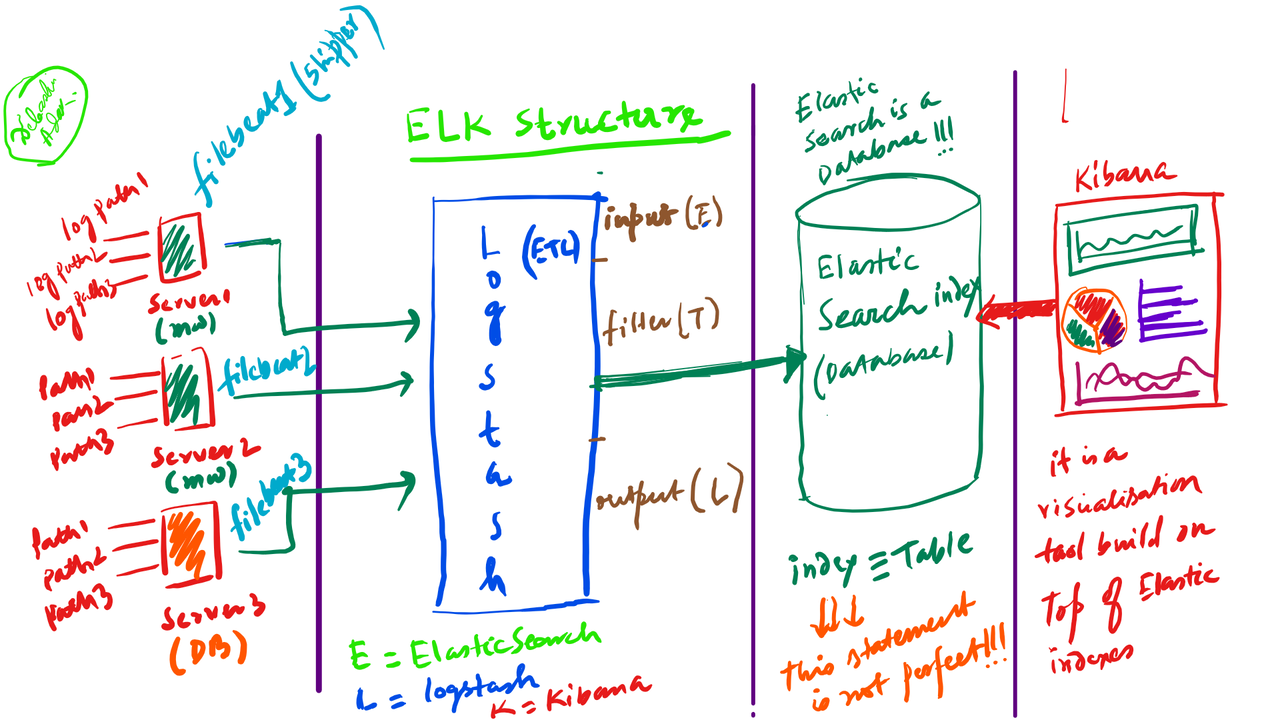 filebeat1 (Shipper)
log path1
log path2
log path3
Server1
(mw)
path1
path2
path3
filebeat2
Server2
(mw)
path1
path2
path3
filebeat3
Server3
(DB)
ELK Structure
Logstash
(ETL)
input (E)
filter (T)
output (L)
E = ElasticSearch
L = logstash
K = Kibana
Elastic
Search is a
Database!!!
Elastic
Search index
(Database)
index ≡ Table
this statement
is not perfect!!!
Kibana
it is a
visualisation
tool build on
Top of Elastic
indexes